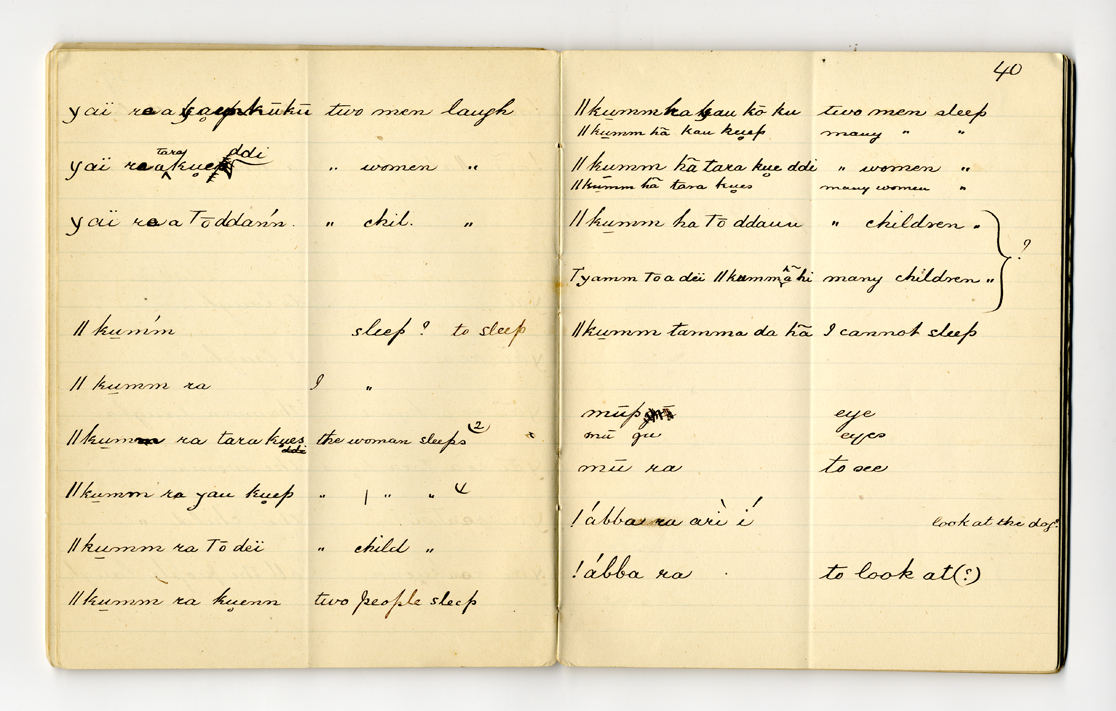 yaï re a kūkū two men laugh
tara ddi
yaï re a kuep „ women „
yaï re a Tōddann. „ chil. „
‖kumm sleep? to sleep
‖kumm ra I „
‖kumm ra tara kues the woman sleeps (2)
ddi
‖kumm ra yau kuep „ | „ „ 4
‖kumm ra Tō deï „ child „
‖kumm ra kuenn two people sleep
40
‖kumm ha kau kō ku two men sleep
‖kumm hā kau kuep many „ „
‖kumm hā tara kue ddi „ women „
‖kumm hā tara kues many women „
‖kumm ha Tō ddauu „ children „
?
Tyamm Tō a deï ‖kumm hā hi many children „
‖kumm tamma da hā I cannot sleep
mūp eye
mū gu eyes
mū ra to see
!ábba ra arì í look at the dog?
!ábba ra to look at(?)